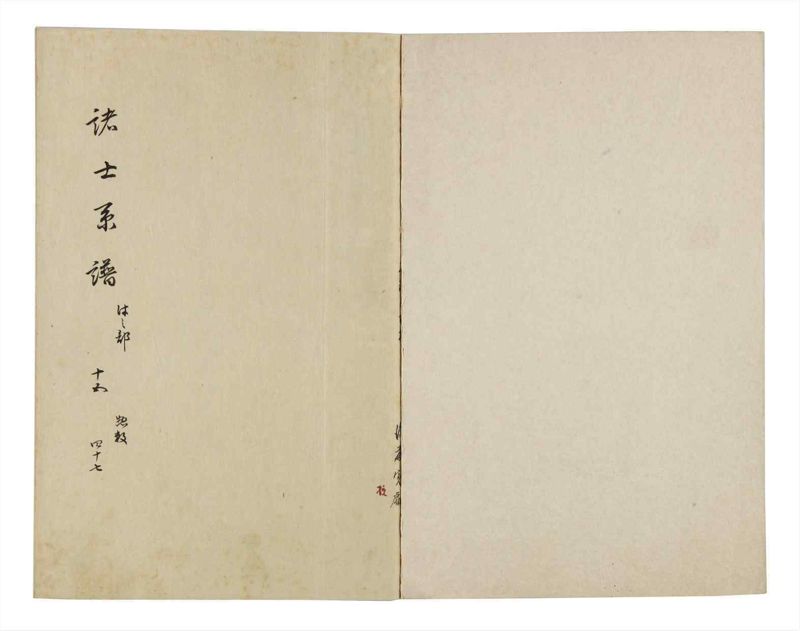 諸士系譜
は之部
十五
惣数
四十七
校